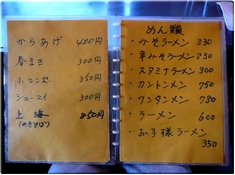 からあげ 400円
春まき 300円
小ロンポー 350円
シューマイ 300円
上海 850円
(やきそば)
めん類
・みそラーメン 830
・辛みそラーメン 830
・スタミナラーメン 900
・カントンメン 750
・ワンタンメン 780
・ラーメン 600
・お子様ラーメン
350